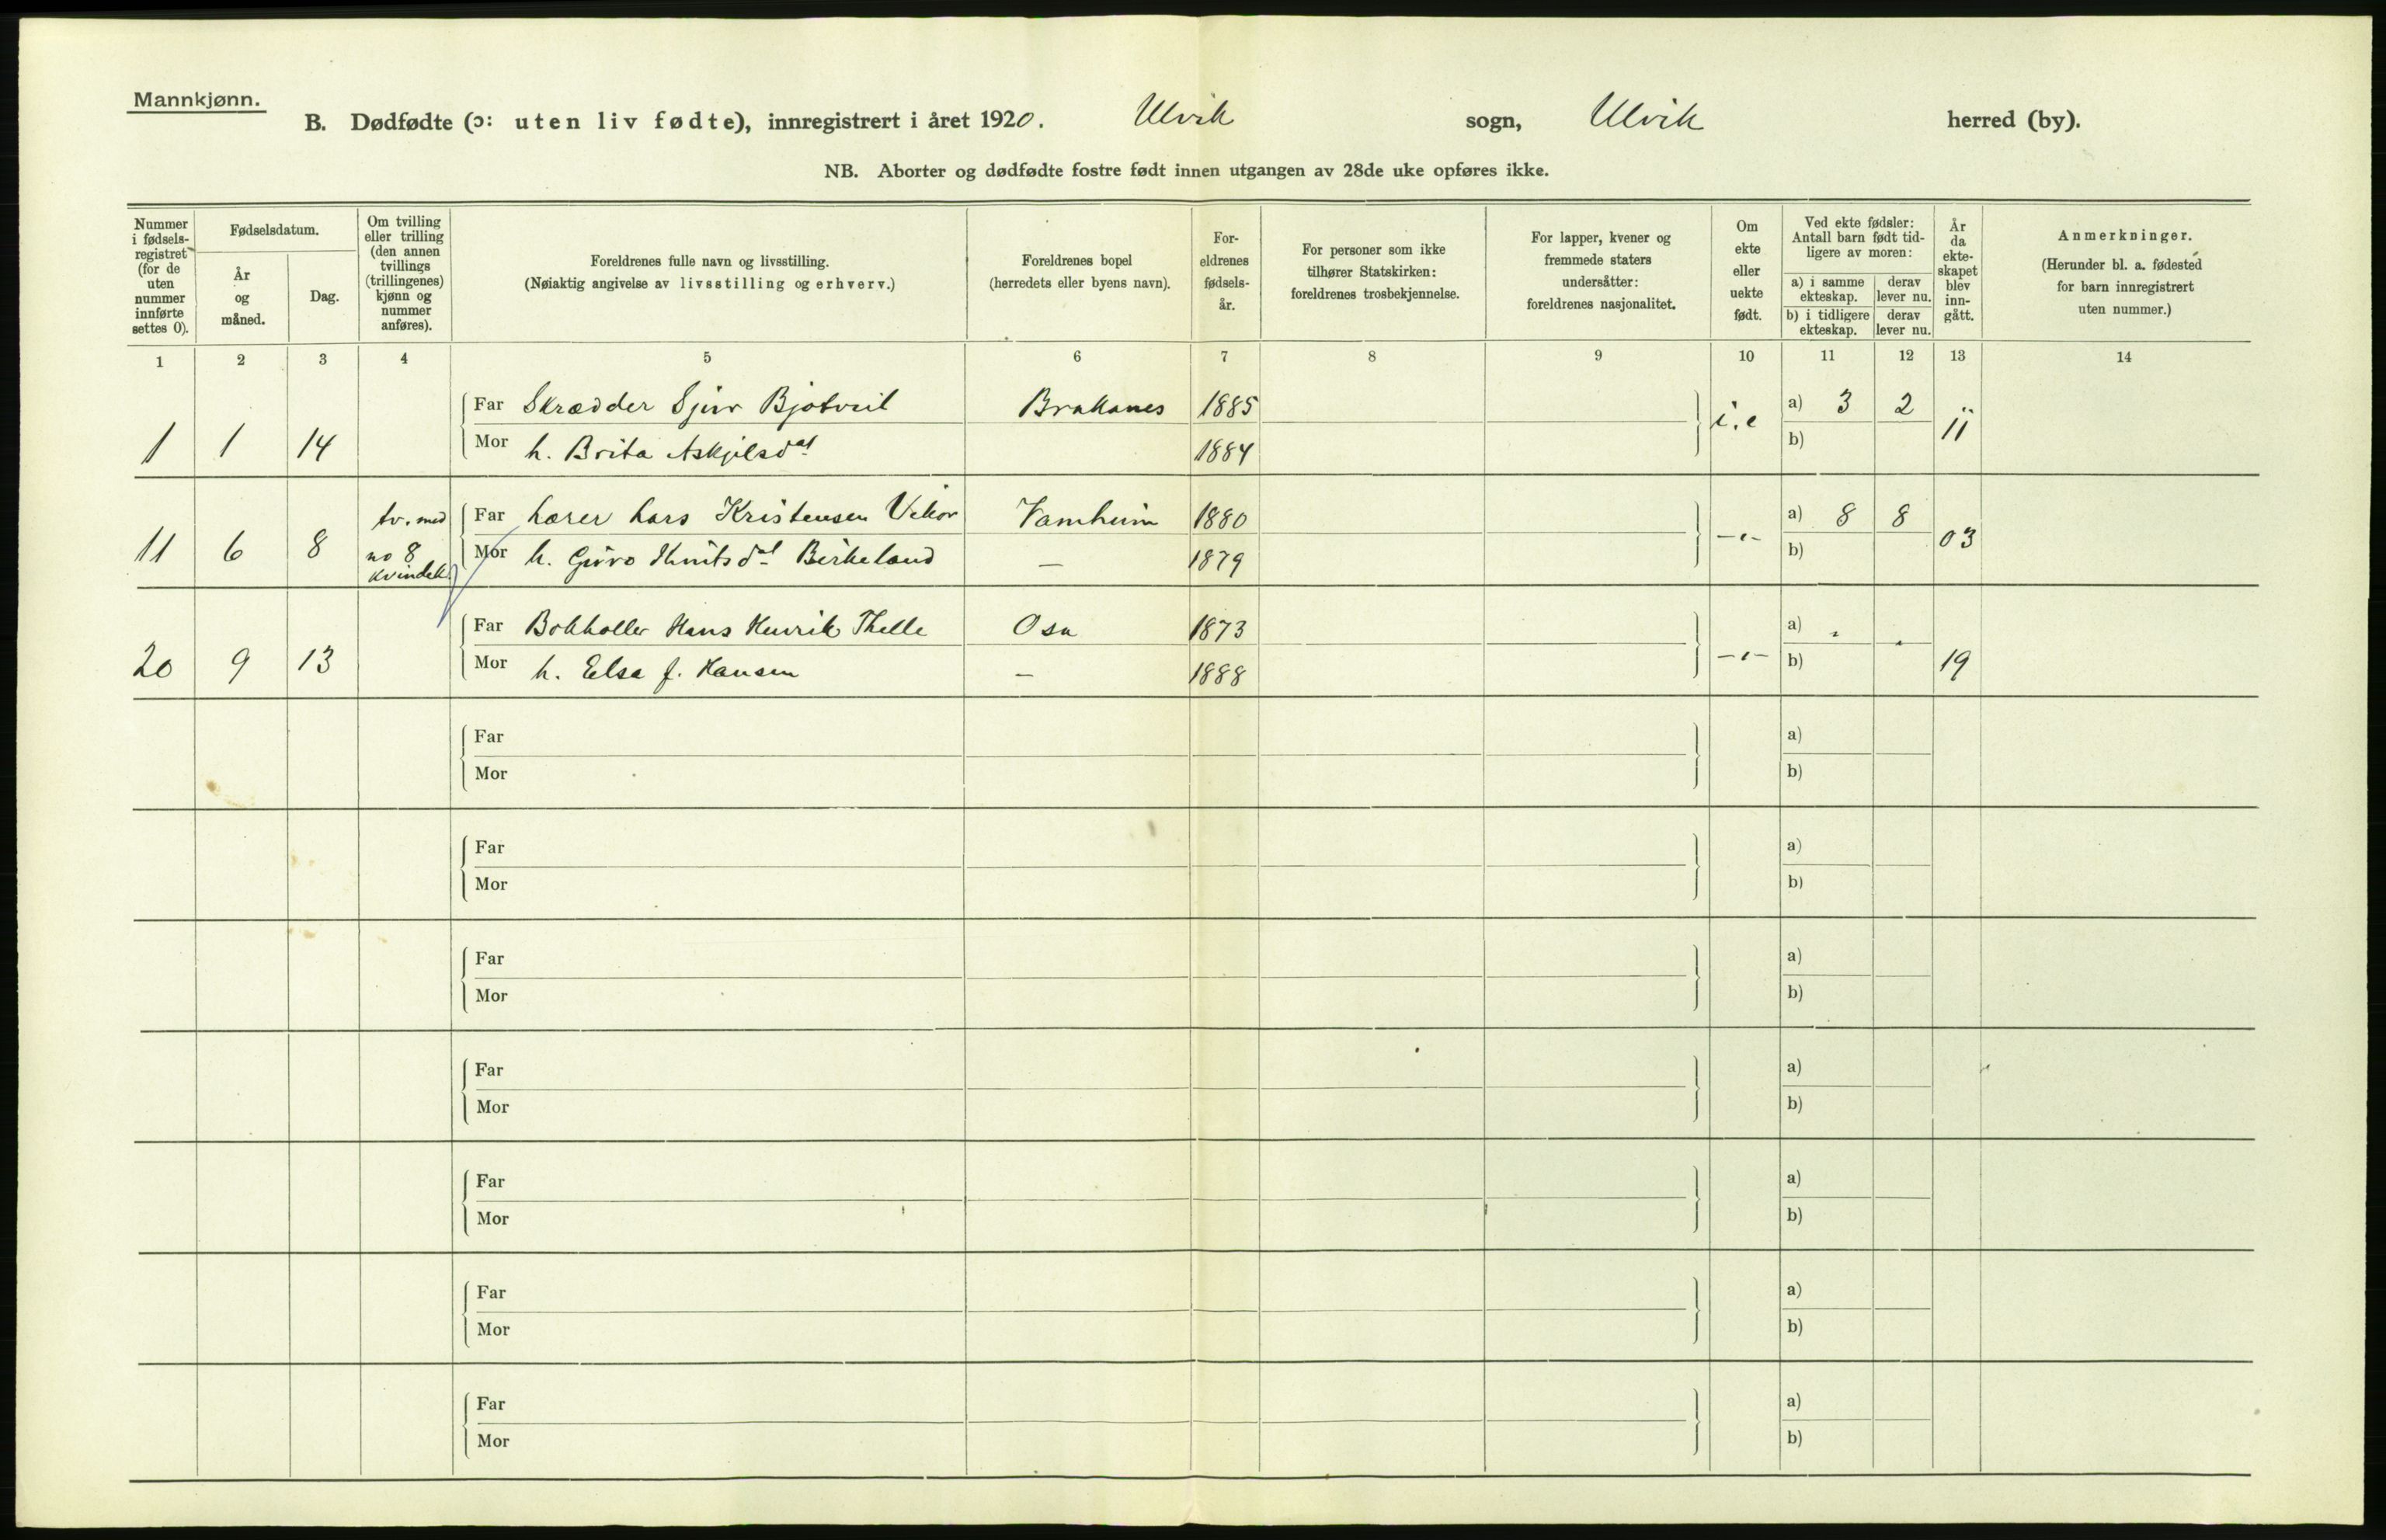 Mannkjønn.
B. Dødfødte (ɔ: uten liv fødte), innregistrert i året 1920. Ulvik sogn, Ulvik herred (by).
NB. Aborter og dødfødte fostre født innen utgangen av 28de uke opføres ikke.
Nummer i fødsels-registret (for de uten nummer innførte settes 0).
Fødselsdatum.
År og måned.
Dag.
Om tvilling eller trilling (den annen tvillings (trillingenes) kjønn og nummer anføres).
Foreldrenes fulle navn og livsstilling.
(Nøiaktig angivelse av livsstilling og erhverv.)
Foreldrenes bopel
(herredets eller byens navn).
For-eldrenes fødsels-år.
For personer som ikke tilhører Statskirken: foreldrenes trosbekjennelse.
For lapper, kvener og fremmede staters undersåtter: foreldrenes nasjonalitet.
Om ekte eller uekte født.
Ved ekte fødsler: Antall barn født tid-ligere av moren:
a) i samme ekteskap.
derav lever nu.
b) i tidligere ekteskap.
derav lever nu.
År da ekte-skapet blev inn-gått.
Anmerkninger.
(Herunder bl. a. fødested for barn innregistrert uten nummer.)
1 2 3 4 5 6 7 8 9 10 11 12 13 14
Far Skrædder Sjur Bjotveit Brakanes 1885 a) 3 2
1 1 14 Mor h. Brita Askjilsdat 1884 i. e b) 11
tv. med Far Lærer Lars Kristensen Vamheim 1880 a) 8 8
11 6 8 no 8 kvindek. Mor h. Guro Knutsdat Birkeland — 1879 -"- b) 03
Far Bokholler Hans Henrik Thelle Osa 1873 a) " "
20 9 13 Mor h. Elsa f. Hansen — 1888 -"- b) 19
Far a)
Mor b)
Far a)
Mor b)
Far a)
Mor b)
Far a)
Mor b)
Far a)
Mor b)
Far a)
Mor b)
Far a)
Mor b)